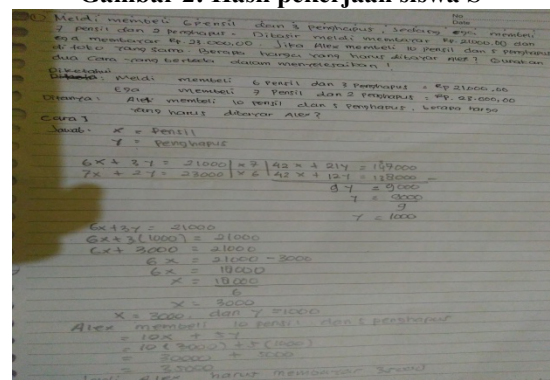 Gambar 2. Hasil pekerjaan siswa S
No
Date
① Meldi membeli 6 pensil dan 3 penghapus, sedang ega membeli
7 pensil dan 2 penghapus. Dibayar meldi membayar Rp. 21000,00 dan
ega membayar Rp. 23.000,00 Jika Alex membeli 10 pensil dan 5 penghapus
di toko yang sama. Berapa harga yang harus dibayar Alex? Gunakan
dua cara yang berbeda dalam menyelesaikan!
Diketahui
Meldi membeli 6 pensil dan 3 penghapus = Rp 21000,00
Ega membeli 7 pensil dan 2 penghapus = Rp. 23.000,00
Ditanya: Alex membeli 10 pensil dan 5 penghapus, berapa harga
yang harus dibayar Alex?
Cara 1
Jawab. x = Pensil
y = penghapus
6x + 3y = 21000 | x 7 | 42x + 21y = 147000
7x + 2y = 23000 | x 6 | 42x + 12y = 138000 -
9y = 9000
y = 9000
9
y = 1000
6x + 3y = 21000
6x + 3(1000) = 21000
6x + 3000 = 21000
6x = 21000 - 3000
6x = 18000
x = 18000
6
x = 3000
x = 3000. dan y = 1000
Alex membeli 10 pensil dan 5 penghapus
= 10x + 5y
= 10(3000) + 5(1000)
= 30000 + 5000
= 35000
Jadi Alex harus membayar 35000